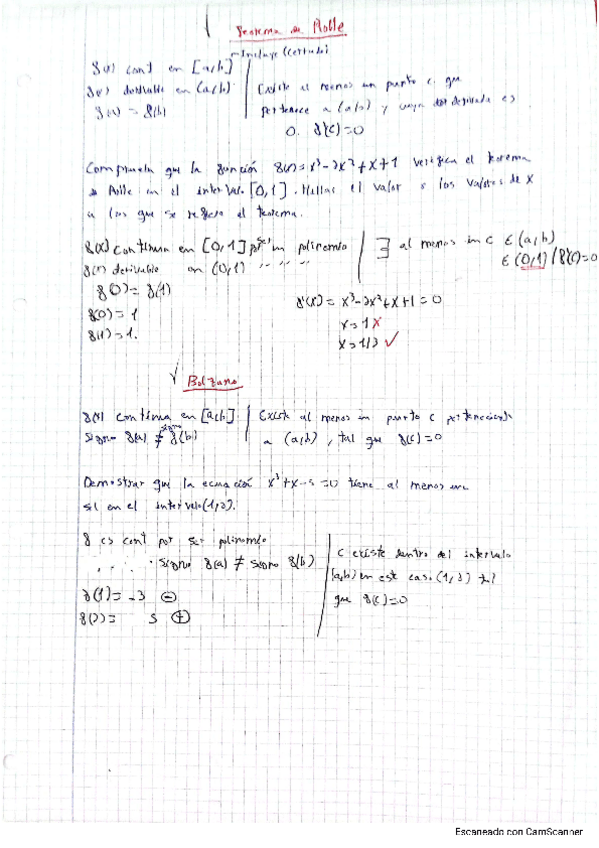 Teorema de Rolle
Incluye (cerrado)
f(x) cont en [a,b]
f(x) derivable en (a,b)
f(a) = f(b)
Existe al menos un punto c que
pertenece a (a,b) y cuya derivada es
0. f'(c)=0
Comprueba que la función f(x)=x³-2x²+x+1 verifica el teorema
de Rolle en el intervalo [0,1]. Hallas el valor o los valores de x
a los que se refiere el teorema.
f(x) continua en [0,1] por ser un polinomio
f(x) derivable en (0,1) " " " "
f(0) = f(1)
f(0) = 1
f(1) = 1.
∃ al menos un c ∈ (a,b)
∈ (0,1) / f'(c)=0
f'(x) = x³-2x²+x+1 = 0
x=1 x
x=1/3 ✓
Bolzano
f(x) continua en [a,b]
signo f(a) ≠ f(b)
Existe al menos un punto c perteneciendo
a (a,b), tal que f(c)=0
Demostrar que la ecuación x³+x-5=0 tiene al menos una
sol en el intervalo (1,2).
f es cont por ser polinomio
signo f(a) ≠ signo f(b)
f(1) = -3 ⊖
f(2) = 5 ⊕
c existe dentro del intervalo
(a,b) en este caso (1,2) tal
que f(c)=0
Escaneado con CamScanner